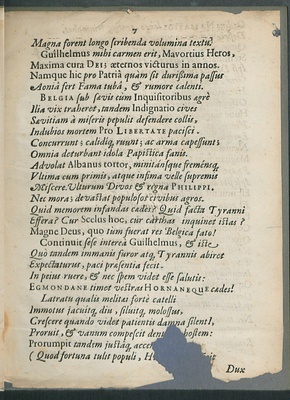 7
Magna forent longo scribenda volumina textu?
Guilhelmus mihi carmen erit, Mavortius Heros,
Maxima cura DEI; æternos victurus in annos.
Namque hic pro Patriâ quàm sit durissima passus
Aoniâ fert Fama tubâ, & rumore talenti.
BELGIA sub sævis cùm Inquisitoribus agrè
Ilia vix traheret, tandem Indignatio cives
Sævitiam à miseris populis defendere collis,
Indubios mortem Pro LIBERTATE pacisci.
Concurrunt; calidiq, ruunt; ac arma capessunt;
Omnia deturbant idola Papistica fanis.
Advolat Albanus tortor, minitansque fremensq,
Ultima cum primis, atque infima velle supremis
Miscere. Vulturum Divos & regna PHILIPPI.
Nec mora; devastat populosos civibus agros.
Quid memorem infandas cædes? Quid facta Tyranni
Effera? Cur Scelus hoc, cur cæthas inquinet istas?
Magne Deus, quo tum fuerat res Belgica fato!
Continuit sese interea Guilhelmus, & iste
Quò tandem immanis furor atq, Tyrannis abiret
Expectaturus, paci præsentia fecit.
In pejus ruere, & nec spem videt esse salutis:
EGMONDANE timet vestras HORNANEQUE cades!
Latratu qualis melitas fortè catelli
Immotus jacuitq, diu, siluitq, molossus,
Crescere quando videt patientis damna silent,
Proruit, & vanum compescit hostem:
Prorumpit tandem justâq, accen
(Quod fortuna tulit populi,
Dux